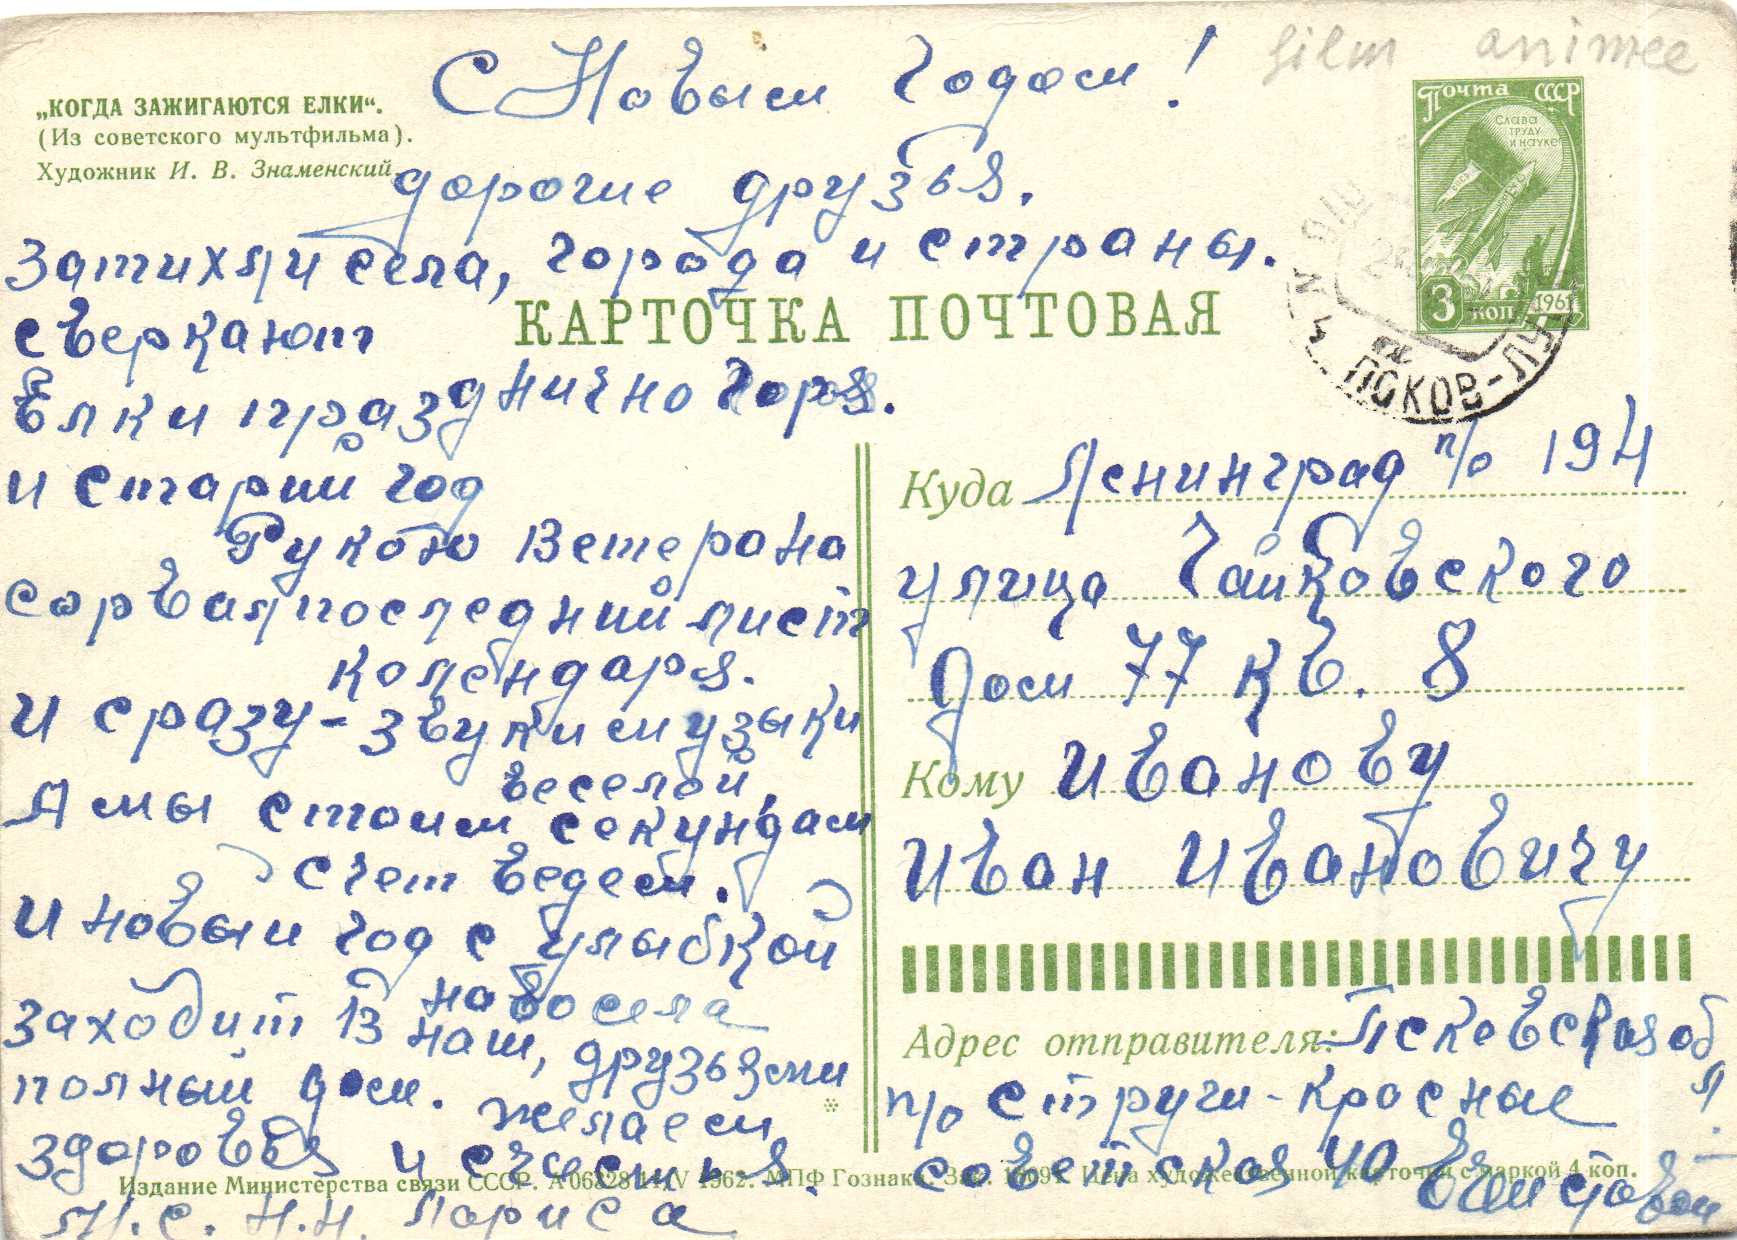 film animee
С Новым годом!
„КОГДА ЗАЖИГАЮТСЯ ЕЛКИ“.
(Из советского мультфильма).
Художник И. В. Знаменский.
дорогие друзья.
Затихли села, города и страны.
сверкают
Елки празднично горя.
и старый год
Рукою Ветерана
сорвал последний лист
колендаря.
И сразу - звуки музыки
веселой,
А мы стоим, секундам
счет ведем.
И новый год с улыбкой
новосела
Заходит в наш, друзьями
полный дом. Желаем
здоровья и счастья.
М. С. Н. Н. Лариса
Почта СССР
Слава
труду
и науке
3 коп 1961
ПСКОВ-ЛУ
КАРТОЧКА ПОЧТОВАЯ
Куда Ленинград п/о 194
улица Чайковского
дом 77 кв. 8
Кому Иванову
Иван Ивановичу
Адрес отправителя: Псковская обл.
п/о Струги-Красные
советская 40
Издание Министерства связи СССР. А 06228 11/V 1962. МПФ Гознака. Зак. Цена художественной карточки с маркой 4 коп.